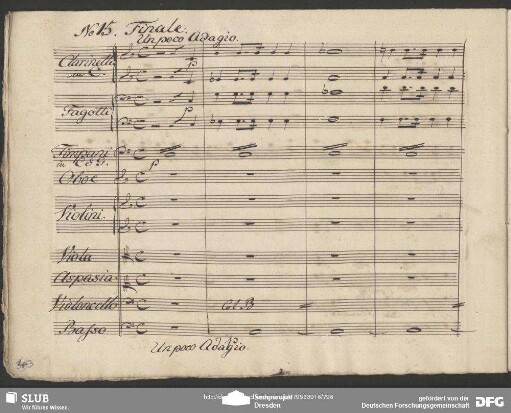 No 15. Finale.
Un poco Adagio.
Clarinetti
in C.
p
Fagotti
p
Timpani
in C e G.
p
Oboe
Violini.
Viola
Aspasia
Violoncello
Col B
Basso
Un poco Adagio.
SLUB
Wir führen Wissen.
Dresden
gefördert von der
Deutschen Forschungsgemeinschaft
DFG